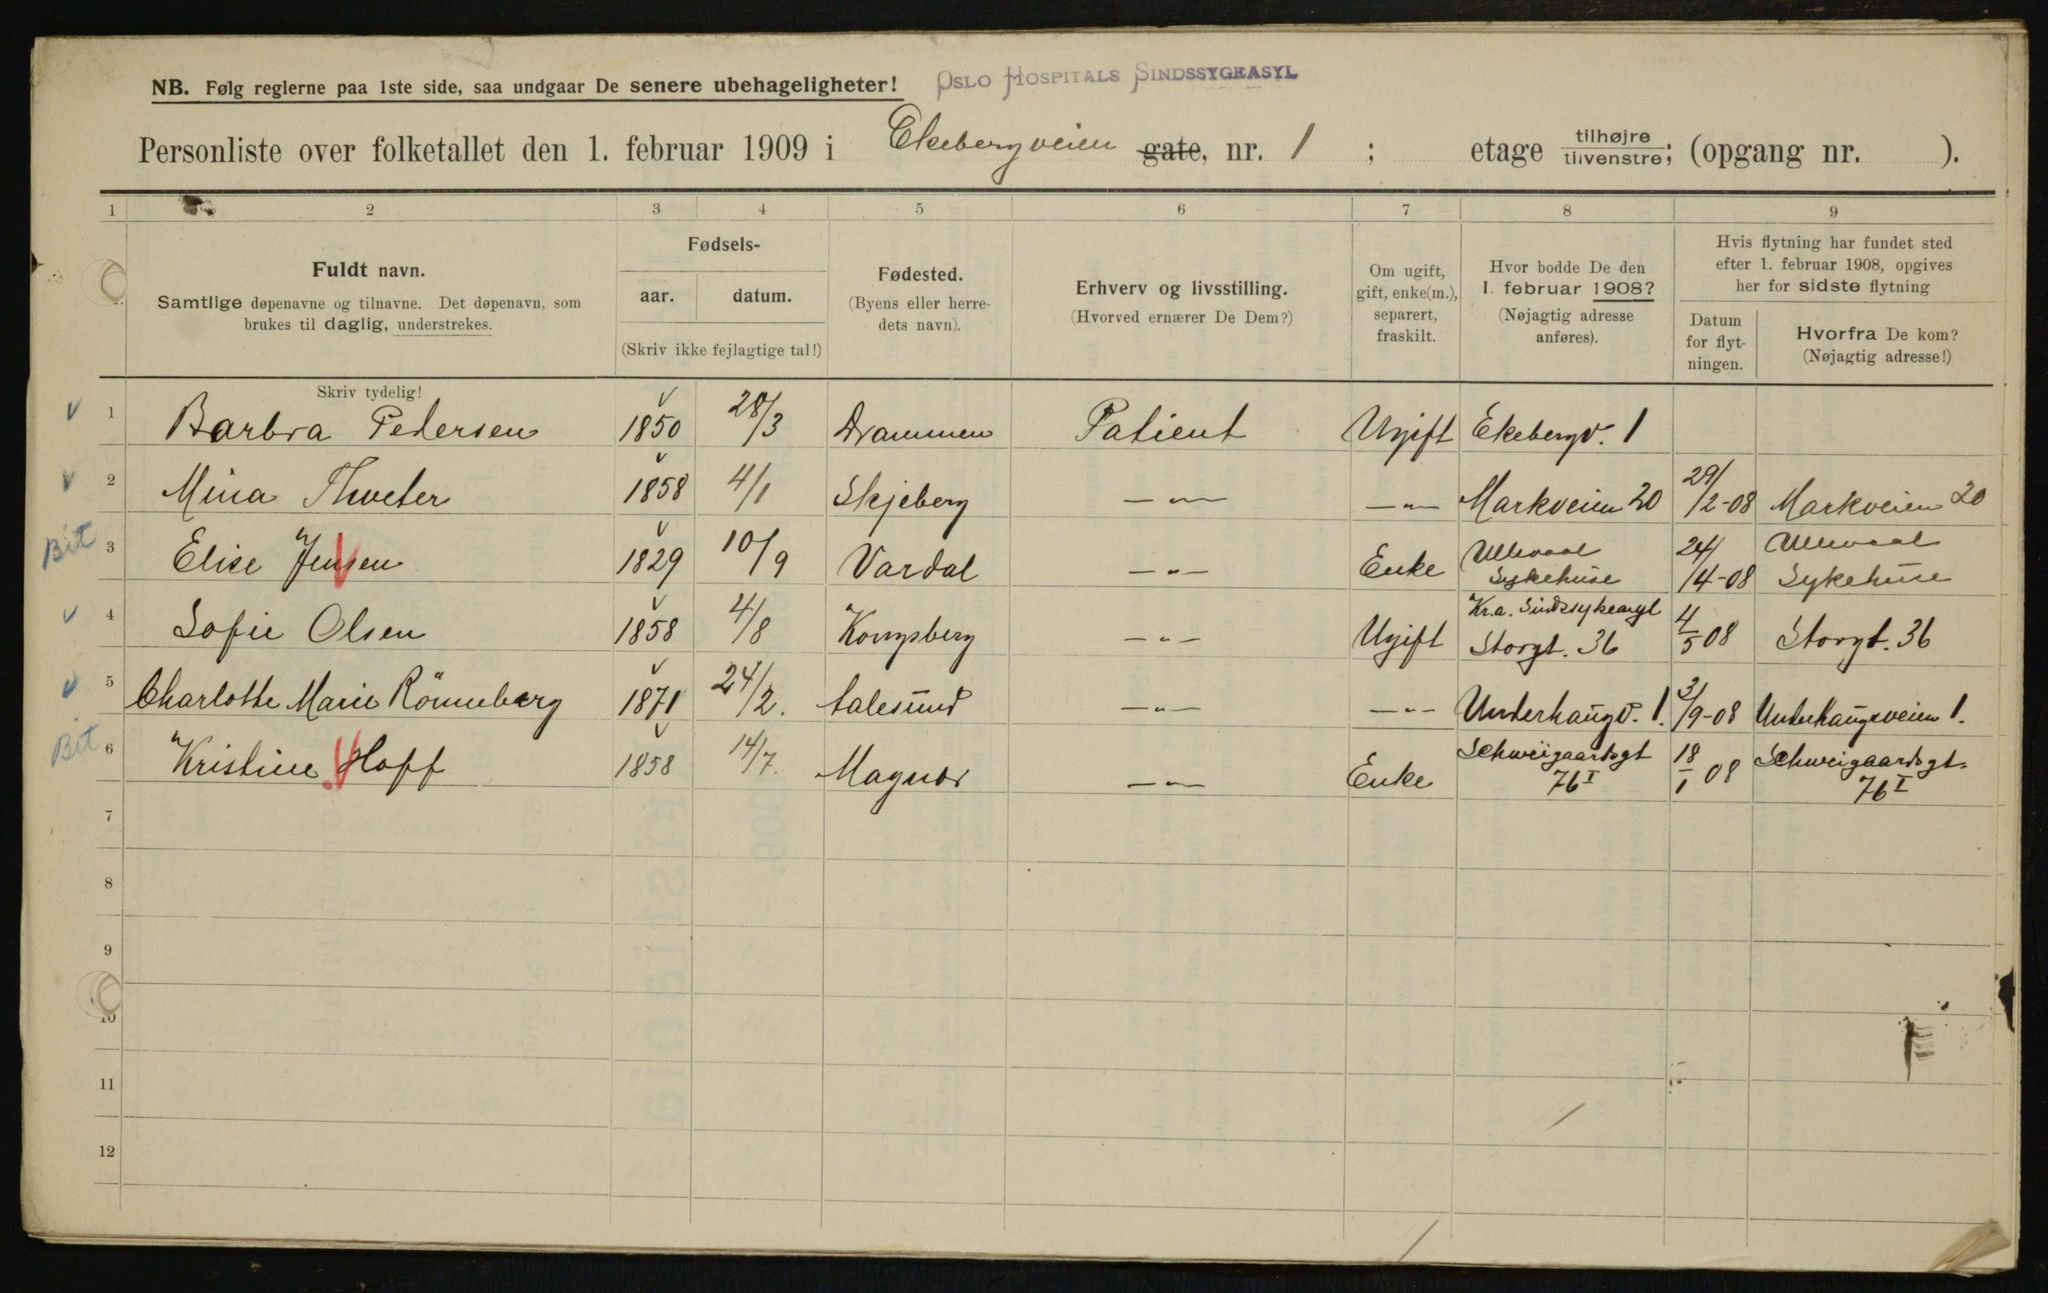 NB. Følg reglerne paa 1ste side, saa undgaar De senere ubehageligheter! OSLO HOSPITALS SINDSSYGEASYL
Personliste over folketallet den 1. februar 1909 i Ekebergveien gate, nr. 1 ; etage tilhøjre/tilvenstre; (opgang nr. ).
1 2 3 4 5 6 7 8 9
Fuldt navn.
Samtlige døpenavne og tilnavne. Det døpenavn, som
brukes til daglig, understrekes.
Skriv tydelig!
Fødsels-
aar. datum.
(Skriv ikke fejlagtige tal!)
Fødested.
(Byens eller herre-
dets navn).
Erhverv og livsstilling.
(Hvorved ernærer De Dem?)
Om ugift,
gift, enke(m.),
separert,
fraskilt.
Hvor bodde De den
1. februar 1908?
(Nøjagtig adresse
anføres).
Hvis flytning har fundet sted
efter 1. februar 1908, opgives
her for sidste flytning
Datum
for flyt-
ningen.
Hvorfra De kom?
(Nøjagtig adresse!)
v 1 Barbra Pedersen 1850 28/3 Drammen Patient Ugift Ekebergv. 1
v 2 Mina Thveter 1858 4/1 Skjeberg — " — — " — Markveien 20 29/2-08 Markveien 20
Bit 3 Elise Jensen 1829 10/9 Vardal — " — Enke Ullevaal Sykehuse 24/14-08 Ullevaal Sykehuse
v 4 Sofie Olsen 1858 4/8 Kongsberg — " — Ugift Kr.a. Sindssykeasyl Storgt. 36 4/5 08 Storgt. 36
v 5 Charlotte Marie Rönneberg 1871 24/2. Aalesund — " — — " — Underhaugv. 1. 3/9-08 Underhaugsveien 1.
Bit 6 Kristine Hoff 1858 14/7. Magnor — " — Enke Schweigaardsgt 76 I 18/1 08 Schweigaardsgt. 76 I
7
8
9
10
11
12